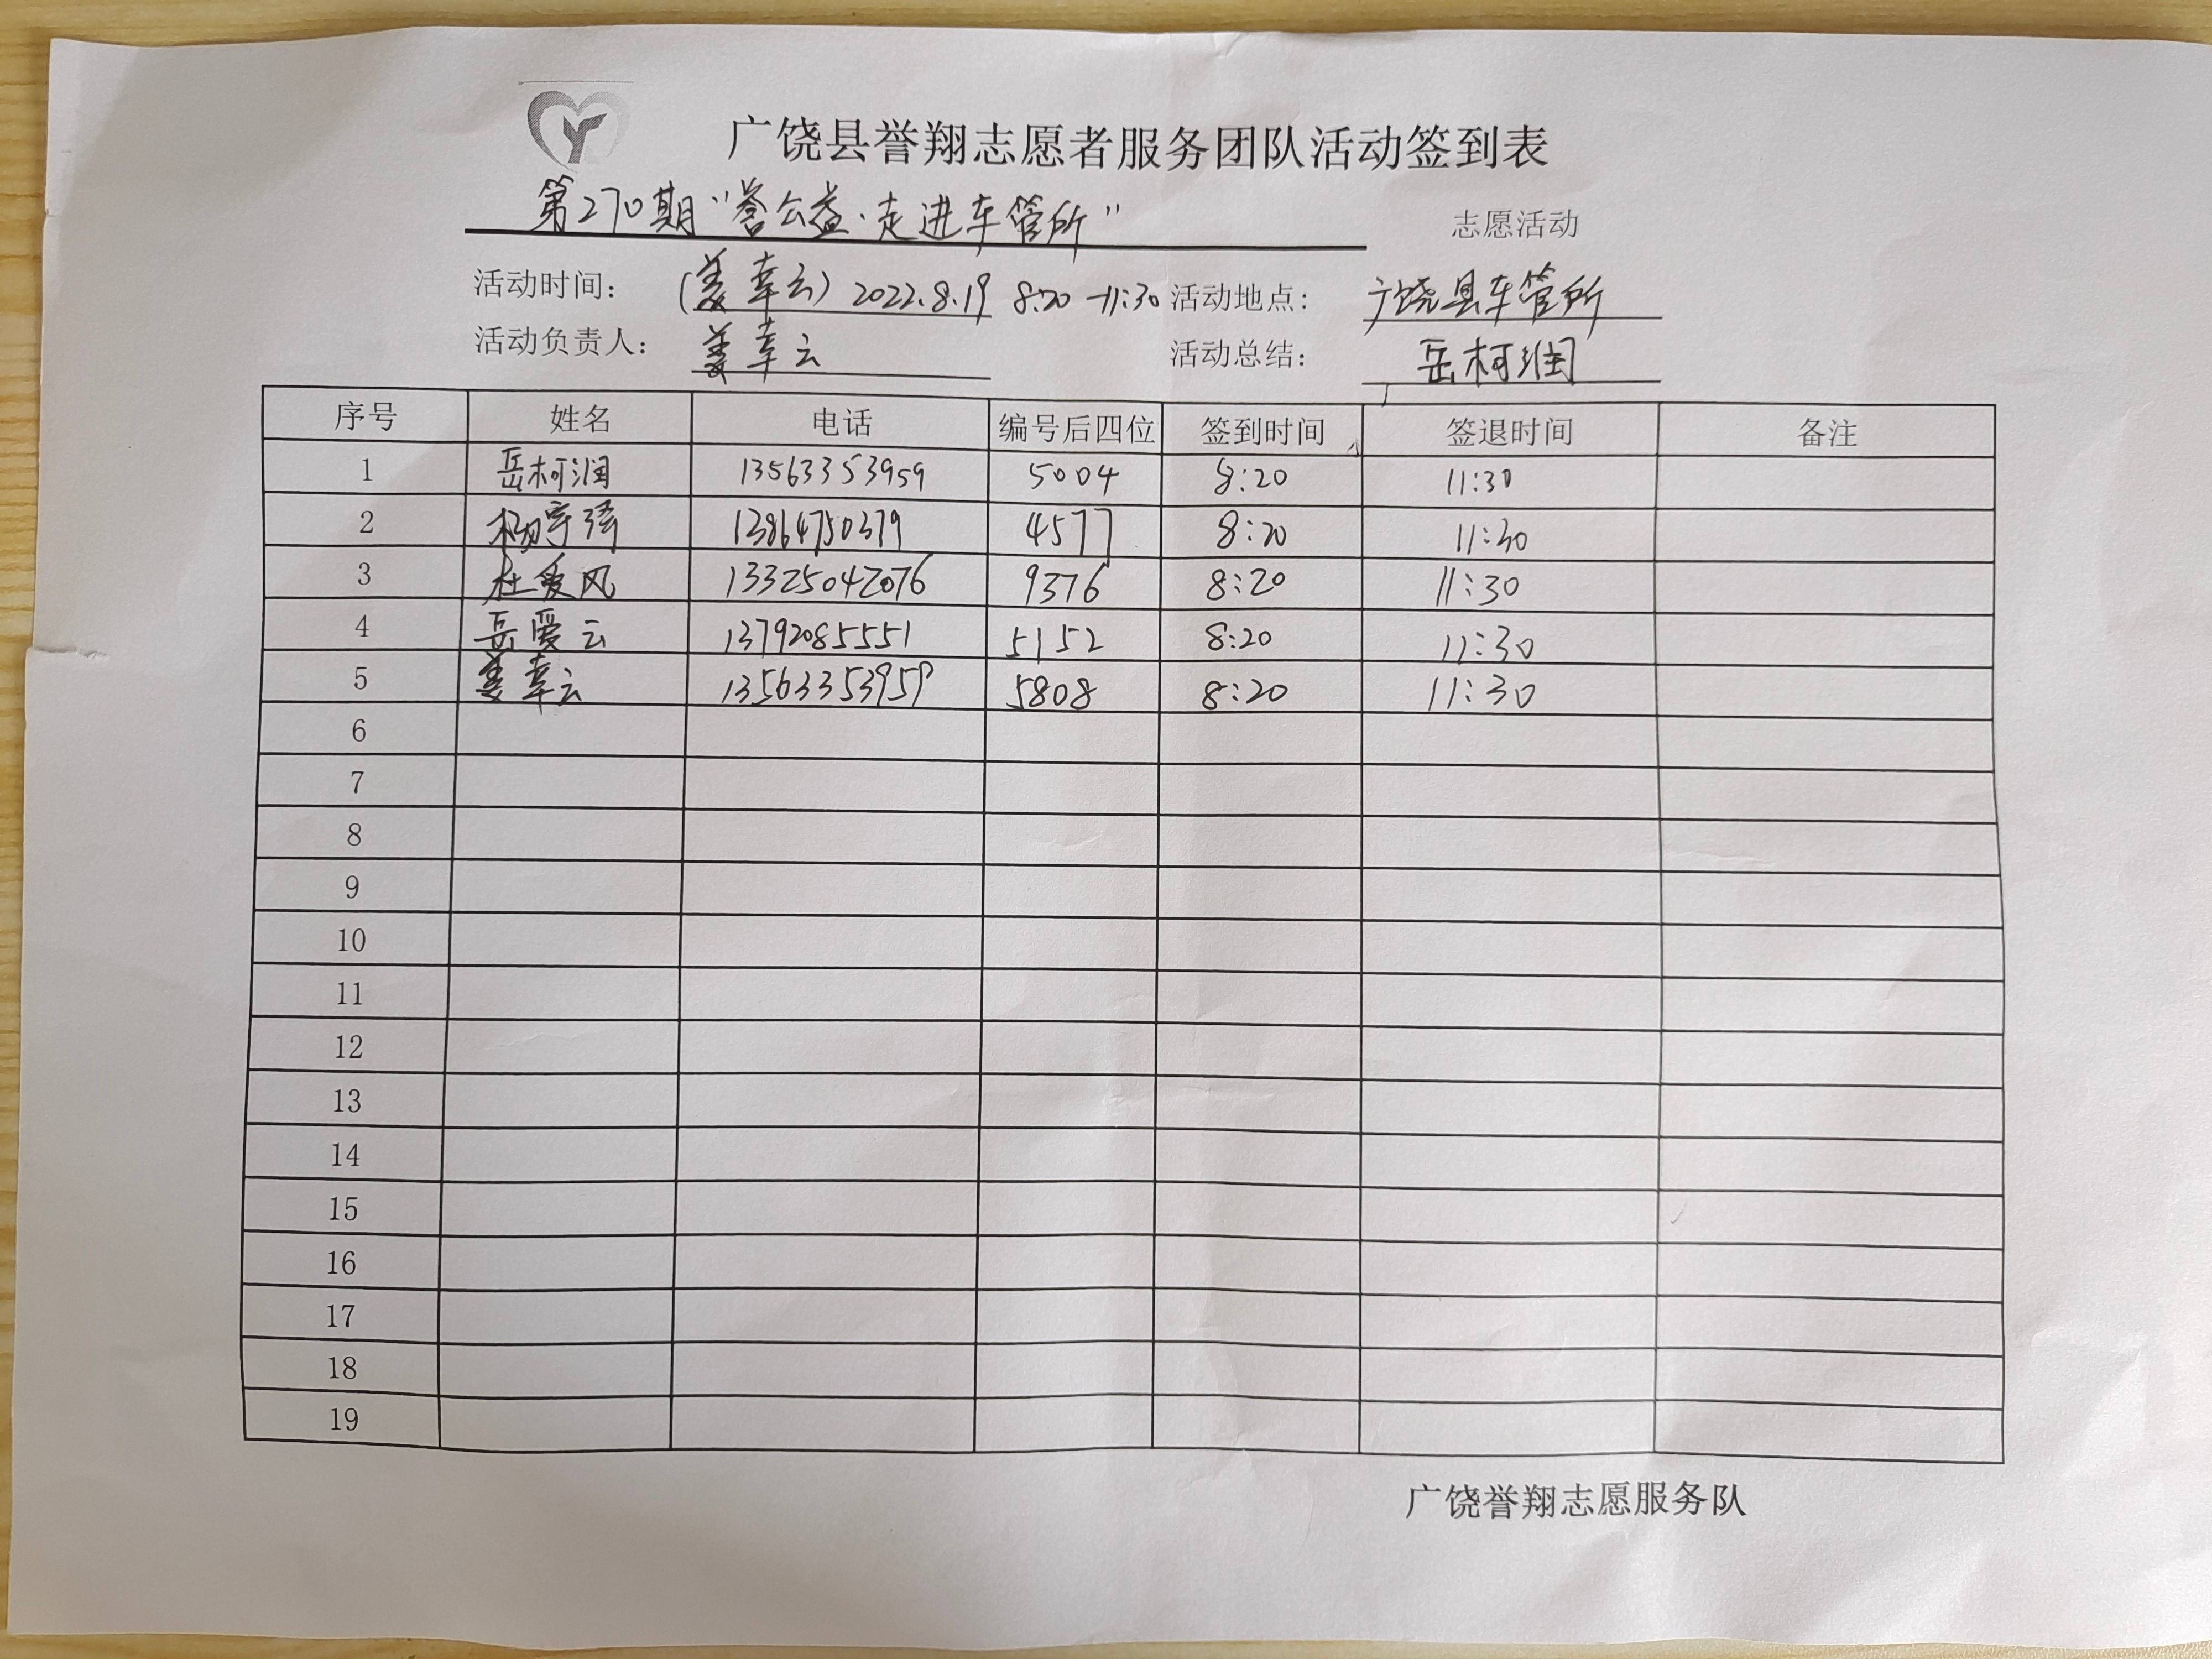 广饶县誉翔志愿者服务团队活动签到表
第270期“誉公益·走进车管所” 志愿活动
活动时间: (姜幸云) 2022.8.19 8:20-11:30 活动地点: 广饶县车管所
活动负责人: 姜幸云 活动总结: 岳柯润
序号 姓名 电话 编号后四位 签到时间 签退时间 备注
1 岳柯润 13563353959 5004 8:20 11:30
2 杨宇 13864750379 4577 8:20 11:30
3 杜爱风 13325042076 9376 8:20 11:30
4 岳爱云 13792085551 5152 8:20 11:30
5 姜幸云 13563353959 5808 8:20 11:30
6
7
8
9
10
11
12
13
14
15
16
17
18
19
广饶誉翔志愿服务队